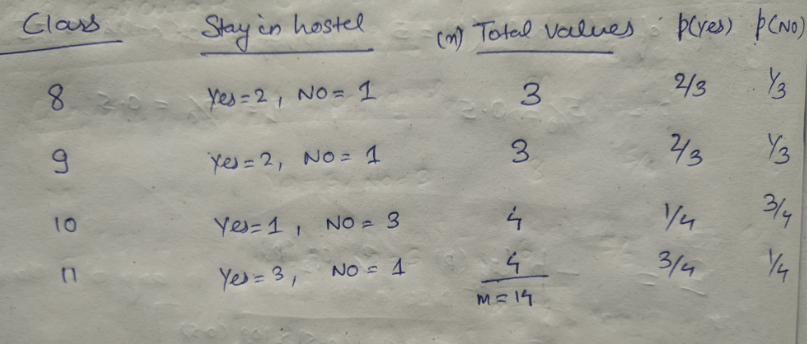 Class Stay in hostel (n) Total values p(Yes) p(NO)
8 Yes=2, NO=1 3 2/3 1/3
9 Yes=2, NO=1 3 2/3 1/3
10 Yes=1, NO=3 4 1/4 3/4
11 Yes=3, NO=1 4 3/4 1/4
m=14